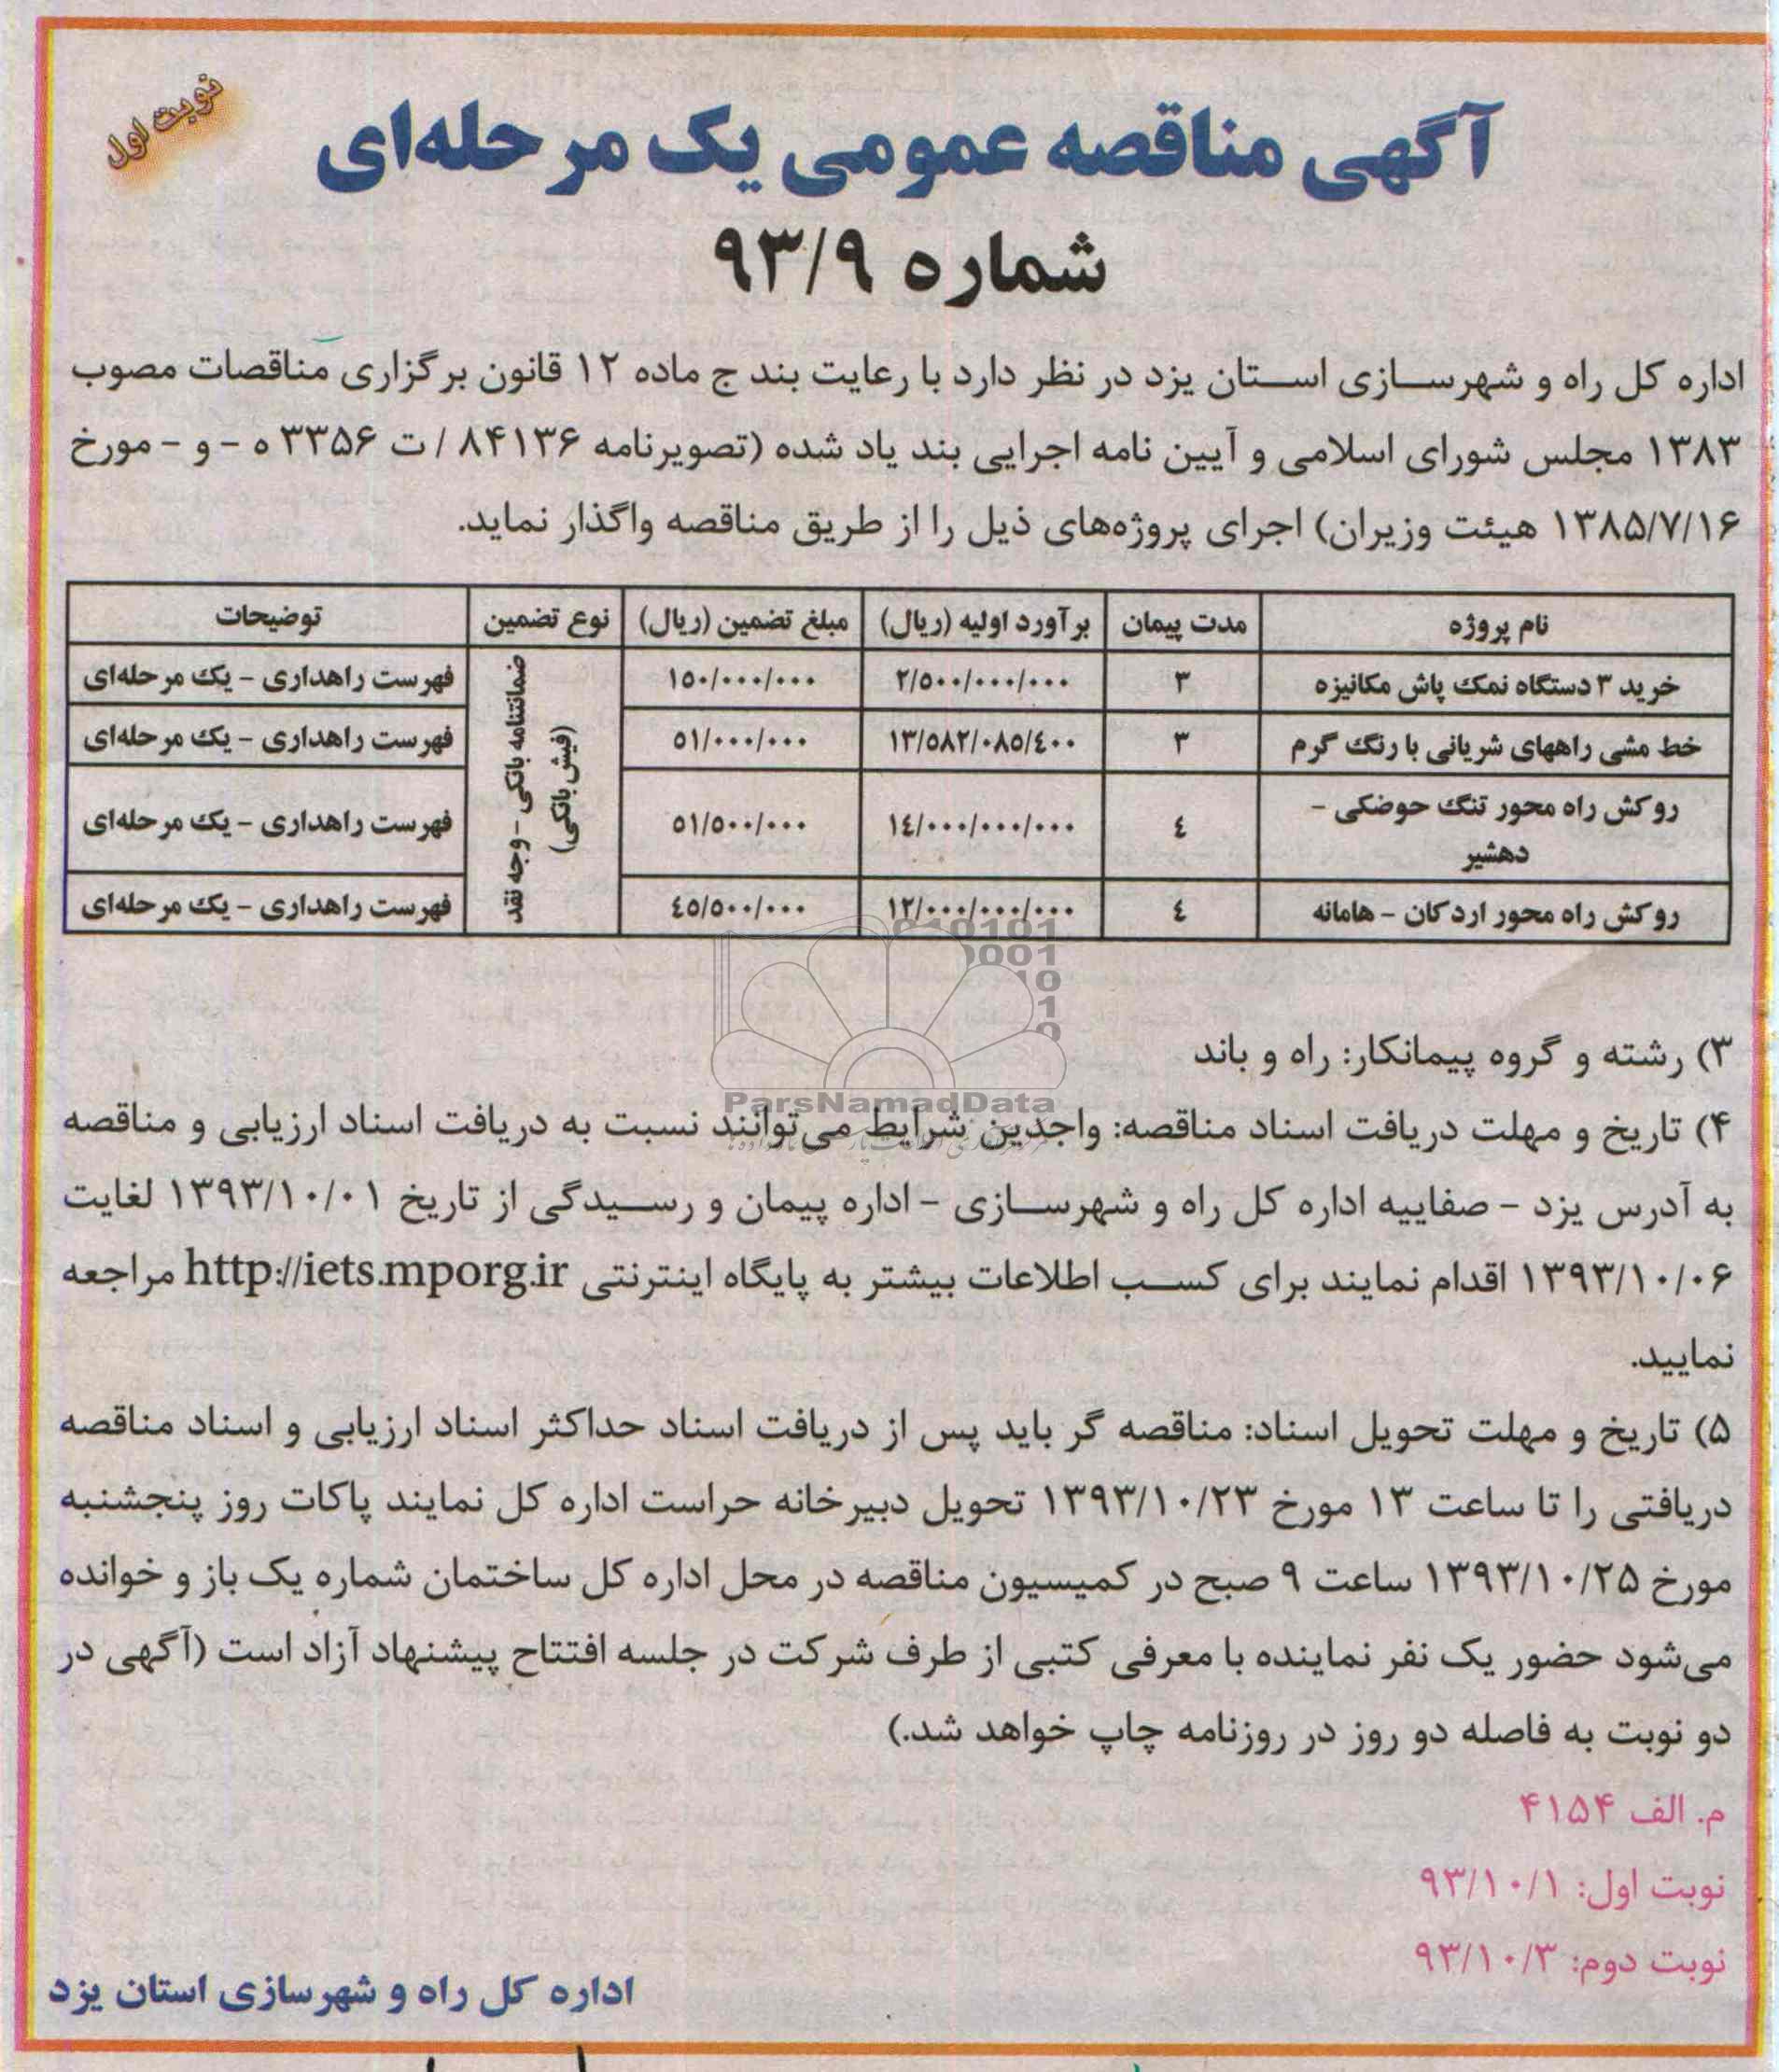 نوبت اول
آگهی مناقصه عمومی یک مرحله‌ای
شماره ۹۳/۹
اداره کل راه و شهرسازی استان یزد در نظر دارد با رعایت بند ج ماده ۱۲ قانون برگزاری مناقصات مصوب
۱۳۸۳ مجلس شورای اسلامی و آیین نامه اجرایی بند یاد شده (تصویرنامه ۸۴۱۳۶ / ت ۳۳۵۶ ه - و - مورخ
۱۳۸۵/۷/۱۶ هیئت وزیران) اجرای پروژه‌های ذیل را از طریق مناقصه واگذار نماید.
نام پروژه | مدت پیمان | برآورد اولیه (ریال) | مبلغ تضمین (ریال) | نوع تضمین | توضیحات
خرید ۳ دستگاه نمک پاش مکانیزه | ۳ | ۲/۵۰۰/۰۰۰/۰۰۰ | ۱۵۰/۰۰۰/۰۰۰ | ضمانتنامه بانکی - وجه نقد (فیش بانکی) | فهرست راهداری - یک مرحله‌ای
خط مشی راههای شریانی با رنگ گرم | ۳ | ۱۳/۵۸۲/۰۸۵/٤۰۰ | ۵۱/۰۰۰/۰۰۰ | فهرست راهداری - یک مرحله‌ای
روکش راه محور تنگ حوضکی -
دهشیر | ٤ | ۱٤/۰۰۰/۰۰۰/۰۰۰ | ۵۱/۵۰۰/۰۰۰ | فهرست راهداری - یک مرحله‌ای
روکش راه محور اردکان - هامانه | ٤ | ۱۲/۰۰۰/۰۰۰/۰۰۰ | ٤۵/۵۰۰/۰۰۰ | فهرست راهداری - یک مرحله‌ای
۳) رشته و گروه پیمانکار: راه و باند
ParsNamadData
۴) تاریخ و مهلت دریافت اسناد مناقصه: واجدین شرایط می‌توانند نسبت به دریافت اسناد ارزیابی و مناقصه
به آدرس یزد - صفاییه اداره کل راه و شهرسازی - اداره پیمان و رسیدگی از تاریخ ۱۳۹۳/۱۰/۰۱ لغایت
۱۳۹۳/۱۰/۰۶ اقدام نمایند برای کسب اطلاعات بیشتر به پایگاه اینترنتی http://iets.mporg.ir مراجعه
نمایید.
۵) تاریخ و مهلت تحویل اسناد: مناقصه گر باید پس از دریافت اسناد حداکثر اسناد ارزیابی و اسناد مناقصه
دریافتی را تا ساعت ۱۳ مورخ ۱۳۹۳/۱۰/۲۳ تحویل دبیرخانه حراست اداره کل نمایند پاکات روز پنجشنبه
مورخ ۱۳۹۳/۱۰/۲۵ ساعت ۹ صبح در کمیسیون مناقصه در محل اداره کل ساختمان شماره یک باز و خوانده
می‌شود حضور یک نفر نماینده با معرفی کتبی از طرف شرکت در جلسه افتتاح پیشنهاد آزاد است (آگهی در
دو نوبت به فاصله دو روز در روزنامه چاپ خواهد شد.)
م. الف ۴۱۵۴
نوبت اول: ۹۳/۱۰/۱
نوبت دوم: ۹۳/۱۰/۳
اداره کل راه و شهرسازی استان یزد